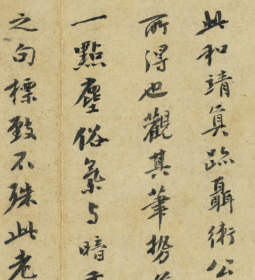 此和靖真跡聶衛公
所得也觀其筆勢
一點塵俗氣与暗香
之句標致不殊此老